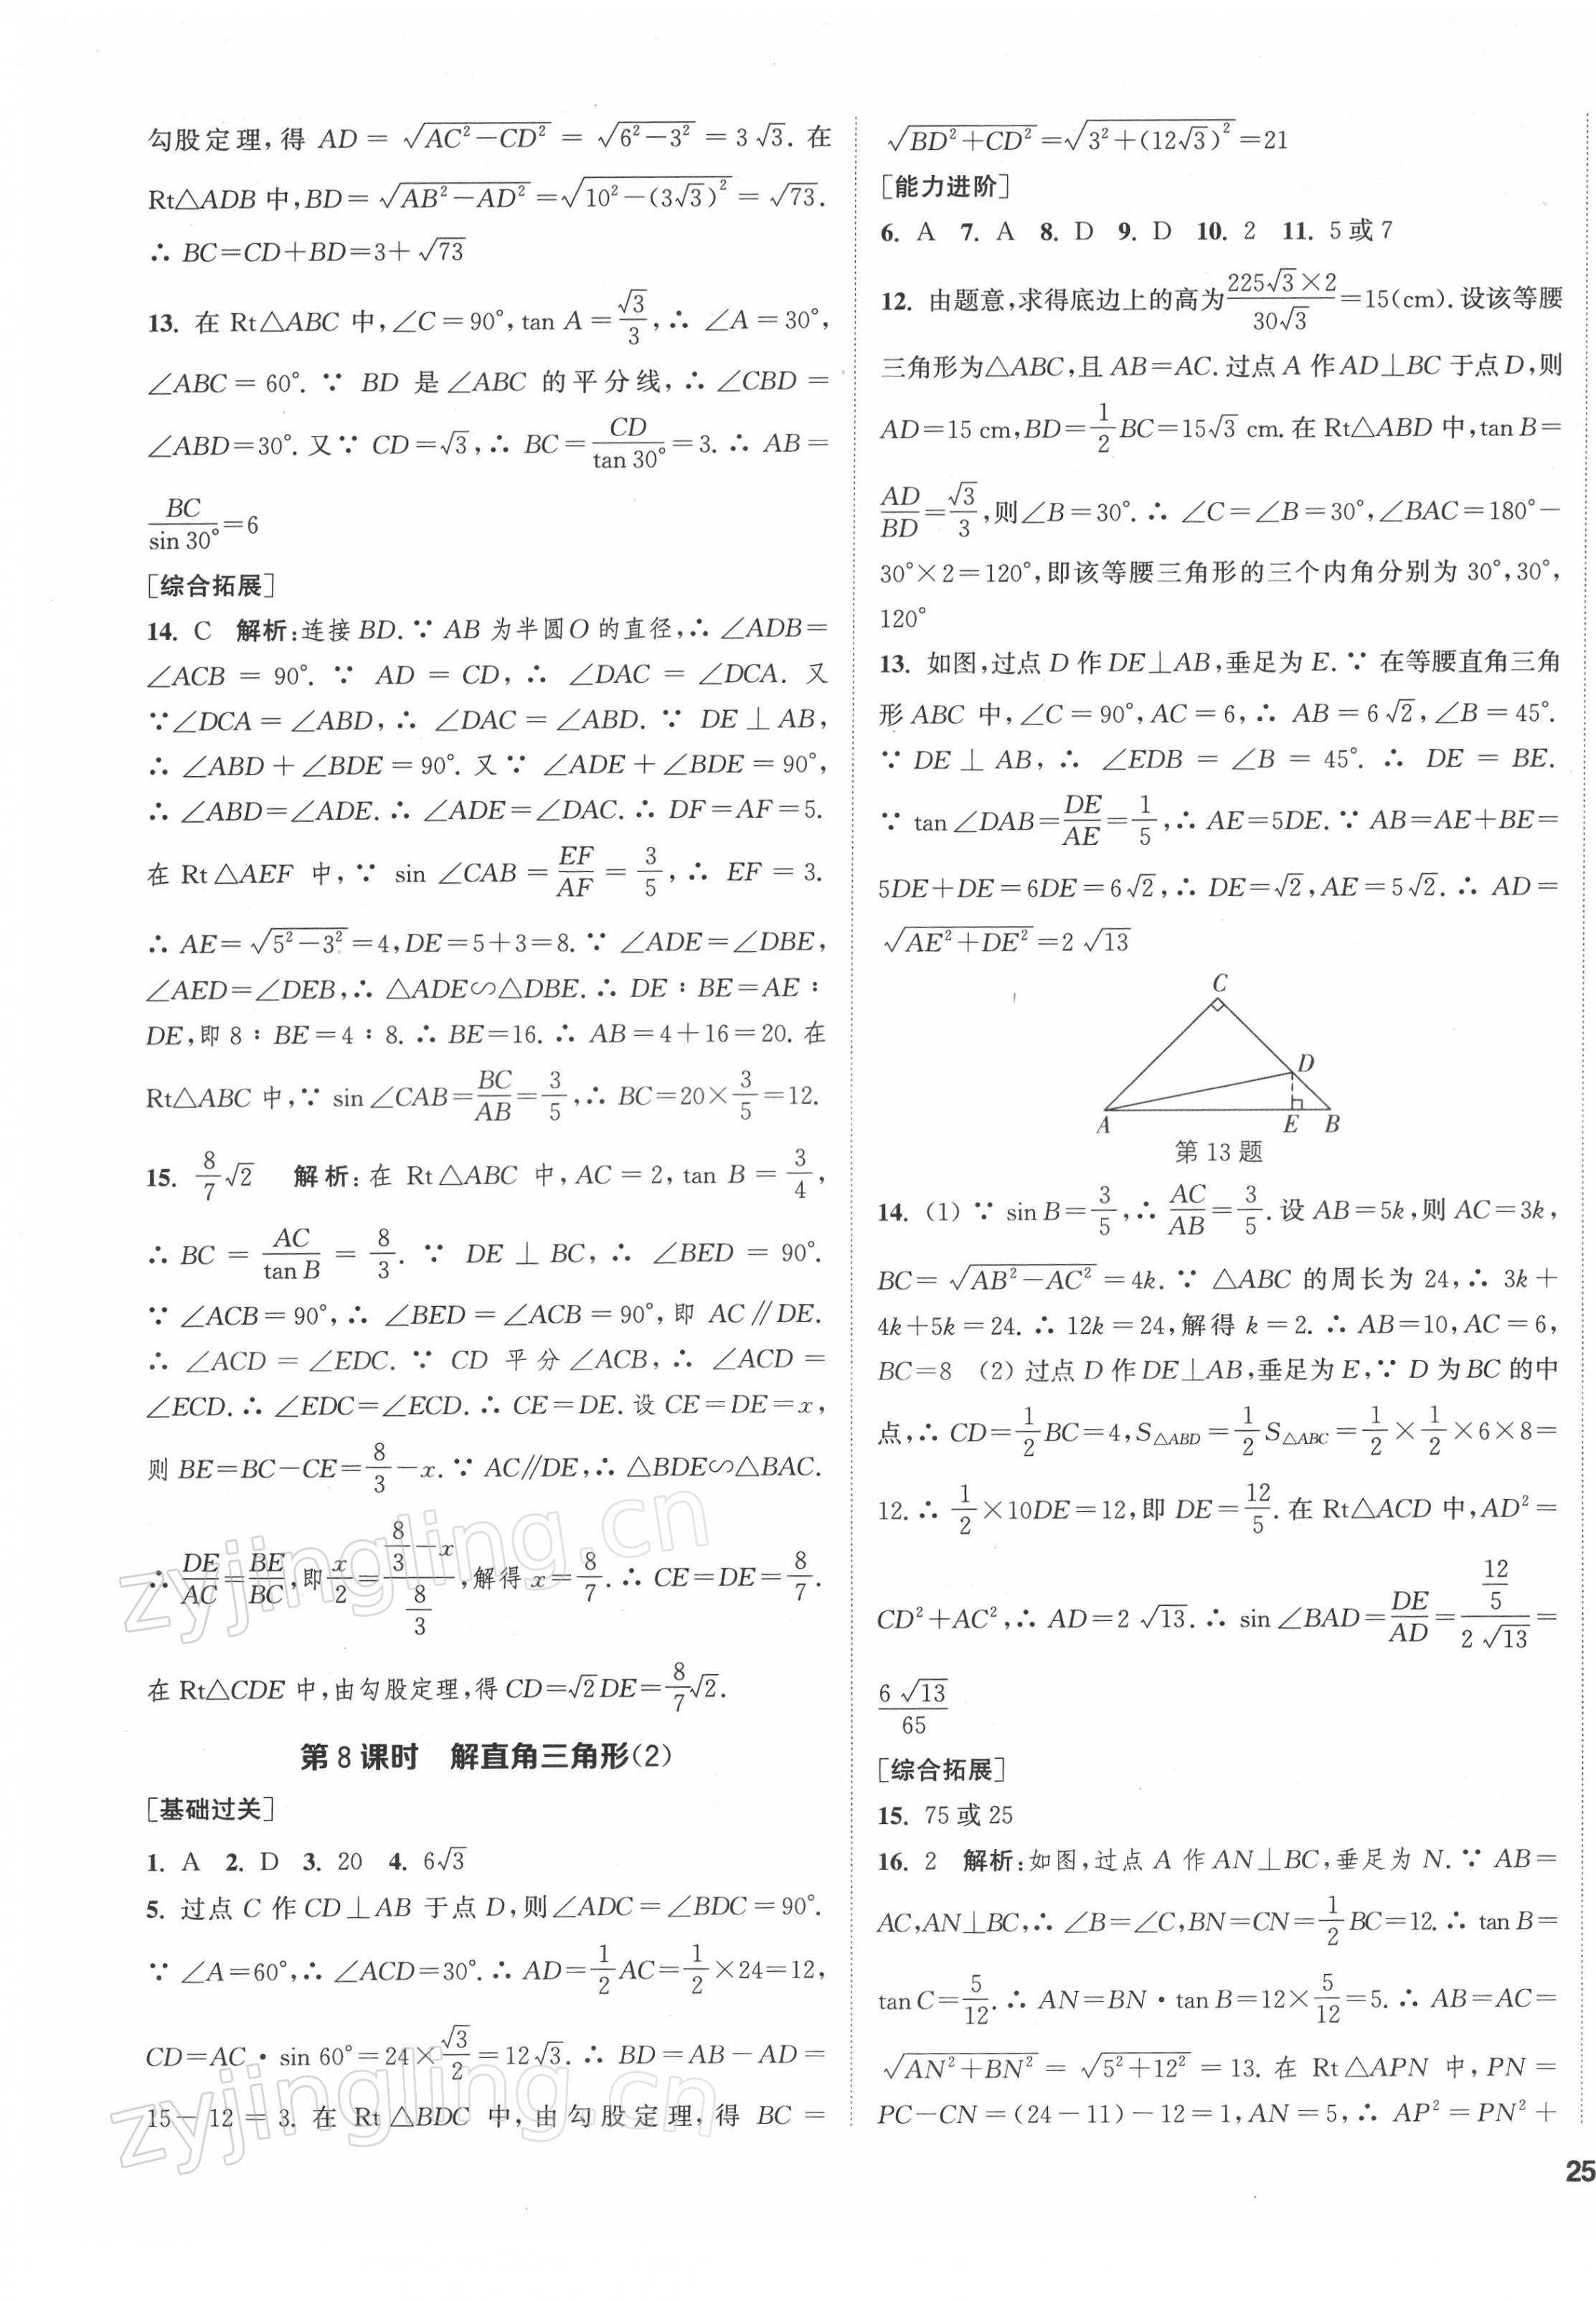 勾股定理,得 AD = √(AC²−CD²) = √(6²−3²) = 3√3. 在
Rt△ADB 中,BD=√(AB²−AD²)=√(10²−(3√3)²)=√73.
∴ BC=CD+BD=3+√73
13. 在 Rt△ABC 中,∠C=90°,tan A=√3/3,∴ ∠A=30°,
∠ABC=60°. ∵ BD 是∠ABC 的平分线,∴ ∠CBD=
∠ABD=30°. 又∵ CD=√3,∴ BC=CD/tan 30°=3. ∴ AB=
BC/sin 30°=6
[综合拓展]
14. C 解析:连接BD. ∵ AB 为半圆O 的直径,∴ ∠ADB=
∠ACB = 90°. ∵ AD = CD, ∴ ∠DAC = ∠DCA. 又
∵∠DCA=∠ABD,∴ ∠DAC=∠ABD. ∵ DE⊥AB,
∴ ∠ABD+∠BDE=90°. 又∵ ∠ADE+∠BDE=90°,
∴ ∠ABD=∠ADE. ∴ ∠ADE=∠DAC. ∴ DF=AF=5.
在 Rt△AEF 中,∵ sin ∠CAB=EF/AF=3/5,∴ EF=3.
∴ AE=√(5²−3²)=4,DE=5+3=8. ∵ ∠ADE=∠DBE,
∠AED=∠DEB,∴ △ADE∽△DBE. ∴ DE∶BE=AE∶
DE,即 8∶BE=4∶8. ∴ BE=16. ∴ AB=4+16=20. 在
Rt△ABC 中,∵ sin∠CAB=BC/AB=3/5,∴ BC=20×3/5=12.
15. 8/7√2 解析:在 Rt△ABC 中,AC=2,tan B=3/4,
∴ BC = AC/tan B = 8/3. ∵ DE ⊥ BC, ∴ ∠BED = 90°.
∵ ∠ACB=90°,∴ ∠BED=∠ACB=90°,即 AC∥DE.
∴ ∠ACD = ∠EDC. ∵ CD 平分∠ACB, ∴ ∠ACD =
∠ECD. ∴ ∠EDC=∠ECD. ∴ CE=DE. 设 CE=DE=x,
则 BE=BC−CE=8/3−x. ∵ AC∥DE,∴ △BDE∽△BAC.
∴ DE/AC=BE/BC,即x/2=(8/3−x)/(8/3),解得 x=8/7. ∴ CE=DE=8/7.
在 Rt△CDE 中,由勾股定理,得 CD=√2DE=8/7√2.
第 8 课时 解直角三角形(2)
[基础过关]
1. A 2. D 3. 20 4. 6√3
5. 过点 C 作 CD⊥AB 于点 D,则∠ADC=∠BDC=90°.
∵ ∠A=60°,∴ ∠ACD=30°. ∴ AD=1/2AC=1/2×24=12,
CD=AC·sin 60°=24×√3/2=12√3. ∴ BD=AB−AD=
15−12=3. 在 Rt△BDC 中,由勾股定理,得 BC=
√(BD²+CD²)=√(3²+(12√3)²)=21
[能力进阶]
6. A 7. A 8. D 9. D 10. 2 11. 5 或 7
12. 由题意,求得底边上的高为(225√3×2)/(30√3)=15(cm). 设该等腰
三角形为△ABC,且 AB=AC. 过点 A 作AD⊥BC 于点D,则
AD=15 cm,BD=1/2BC=15√3 cm. 在 Rt△ABD 中,tan B=
AD/BD=√3/3,则∠B=30°. ∴ ∠C=∠B=30°,∠BAC=180°−
30°×2=120°,即该等腰三角形的三个内角分别为 30°,30°,
120°
13. 如图,过点 D 作DE⊥AB,垂足为 E. ∵ 在等腰直角三角
形ABC 中,∠C=90°,AC=6,∴ AB=6√2,∠B=45°.
∵ DE ⊥ AB, ∴ ∠EDB = ∠B = 45°. ∴ DE = BE.
∵ tan∠DAB=DE/AE=1/5,∴ AE=5DE. ∵ AB=AE+BE=
5DE+DE=6DE=6√2,∴ DE=√2,AE=5√2. ∴ AD=
√(AE²+DE²)=2√13
C
D
A E B
第 13 题
14. (1) ∵ sin B=3/5,∴ AC/AB=3/5. 设 AB=5k,则 AC=3k,
BC=√(AB²−AC²)=4k. ∵ △ABC 的周长为 24,∴ 3k+
4k+5k=24. ∴ 12k=24,解得 k=2. ∴ AB=10,AC=6,
BC=8 (2) 过点 D 作DE⊥AB,垂足为 E,∵ D 为BC 的中
点,∴ CD=1/2BC=4,S△ABD=1/2S△ABC=1/2×1/2×6×8=
12. ∴ 1/2×10DE=12,即 DE=12/5. 在 Rt△ACD 中,AD²=
CD²+AC²,∴ AD=2√13. ∴ sin ∠BAD=DE/AD=(12/5)/(2√13)=
6√13/65
[综合拓展]
15. 75 或 25
16. 2 解析:如图,过点 A 作 AN⊥BC,垂足为 N. ∵ AB=
AC,AN⊥BC,∴ ∠B=∠C,BN=CN=1/2BC=12. ∴ tan B=
tan C=5/12. ∴ AN=BN·tan B=12×5/12=5. ∴ AB=AC=
√(AN²+BN²)=√(5²+12²)=13. 在 Rt△APN 中,PN=
PC−CN=(24−11)−12=1,AN=5,∴ AP²=PN²+
25
zyjingling.cn
zyjingling.cn